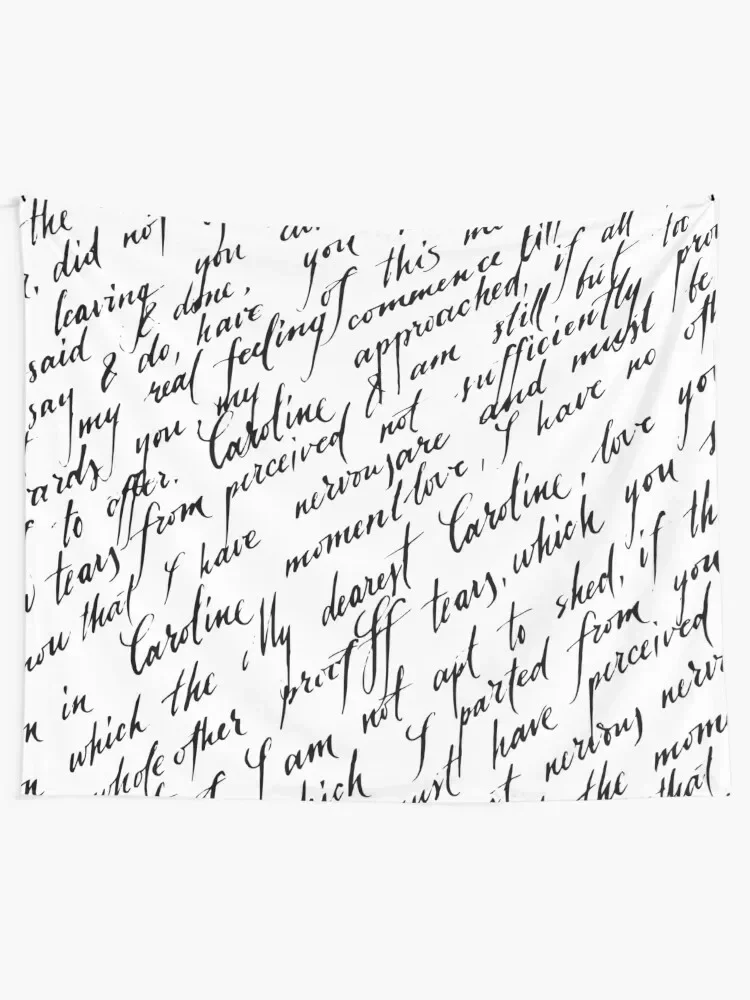 the
did not
leaving you
said & done, you
say & do, have of this
my real feeling commence till
you, my approached, if all to
to offer. Caroline I am still but
tears from perceived not sufficiently
that I have nervous are and must be
moment love, I have no
in Caroline My dearest Caroline, love
which the proof off tears, which you
whole other I am not apt to shed, if
I parted from you
have perceived
nervous
the
that